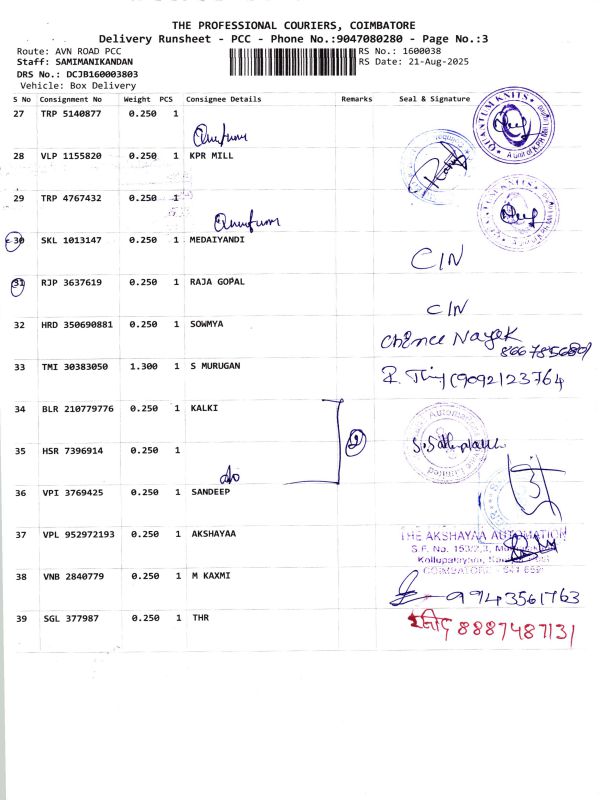 THE PROFESSIONAL COURIERS, COIMBATORE
Delivery Runsheet - PCC - Phone No.:9047080280 - Page No.:3
Route: AVN ROAD PCC
RS No.: 1600038
Staff: SAMIMANIKANDAN
RS Date: 21-Aug-2025
DRS No.: DCJB160003803
Vehicle: Box Delivery
S No Consignment No Weight PCS Consignee Details Remarks Seal & Signature
27 TRP 5140877 0.250 1
QUANTUM KNITS
28 VLP 1155820 0.250 1 KPR MILL
29 TRP 4767432 0.250 1
QUANTUM KNITS
30 SKL 1013147 0.250 1 MEDAIYANDI CIN
31 RJP 3637619 0.250 1 RAJA GOPAL CIN
32 HRD 350690881 0.250 1 SOWMYA
33 TMI 30383050 1.300 1 S MURUGAN
9092123764
34 BLR 210779776 0.250 1 KALKI
2
35 HSR 7396914 0.250 1
do
36 VPI 3769425 0.250 1 SANDEEP
37 VPL 952972193 0.250 1 AKSHAYAA
THE AKSHAYAA AUTOMATION
S.F. No. 153/2,3,
Kollupalayam,
COIMBATORE
38 VNB 2840779 0.250 1 M KAXMI
9943561763
39 SGL 377987 0.250 1 THR
8887487131